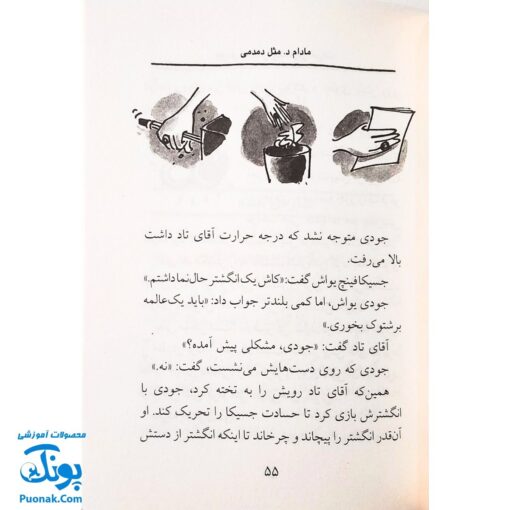 مادام د. مثل دمدمی
جودی متوجه نشد که درجه حرارت آقای تاد داشت
بالا می‌رفت.
جسیکا فینچ یواش گفت: «کاش یک انگشتر حال‌نما داشتم.»
جودی یواش، اما کمی بلندتر جواب داد: «باید یک عالمه
برشتوک بخوری.»
آقای تاد گفت: «جودی، مشکلی پیش آمده؟»
جودی که روی دست‌هایش می‌نشست، گفت: «نه.»
همین‌که آقای تاد رویش را به تخته کرد، جودی با
انگشترش بازی کرد تا حسادت جسیکا را تحریک کند. او
آن‌قدر انگشتر را پیچاند و چرخاند تا اینکه انگشتر از دستش
۵۵
محصولات آموزشی
پونک
Puonak.Com